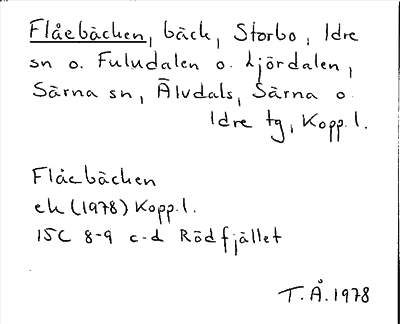 Flåebäcken, bäck, Storbo, Idre
sn o. Fuludalen o. Ljördalen,
Särna sn, Älvdals, Särna o.
Idre tg, Kopp. l.
Flåebäcken
ek (1978) Kopp. l.
15C 8-9 c-d Rödfjället
T.Å. 1978